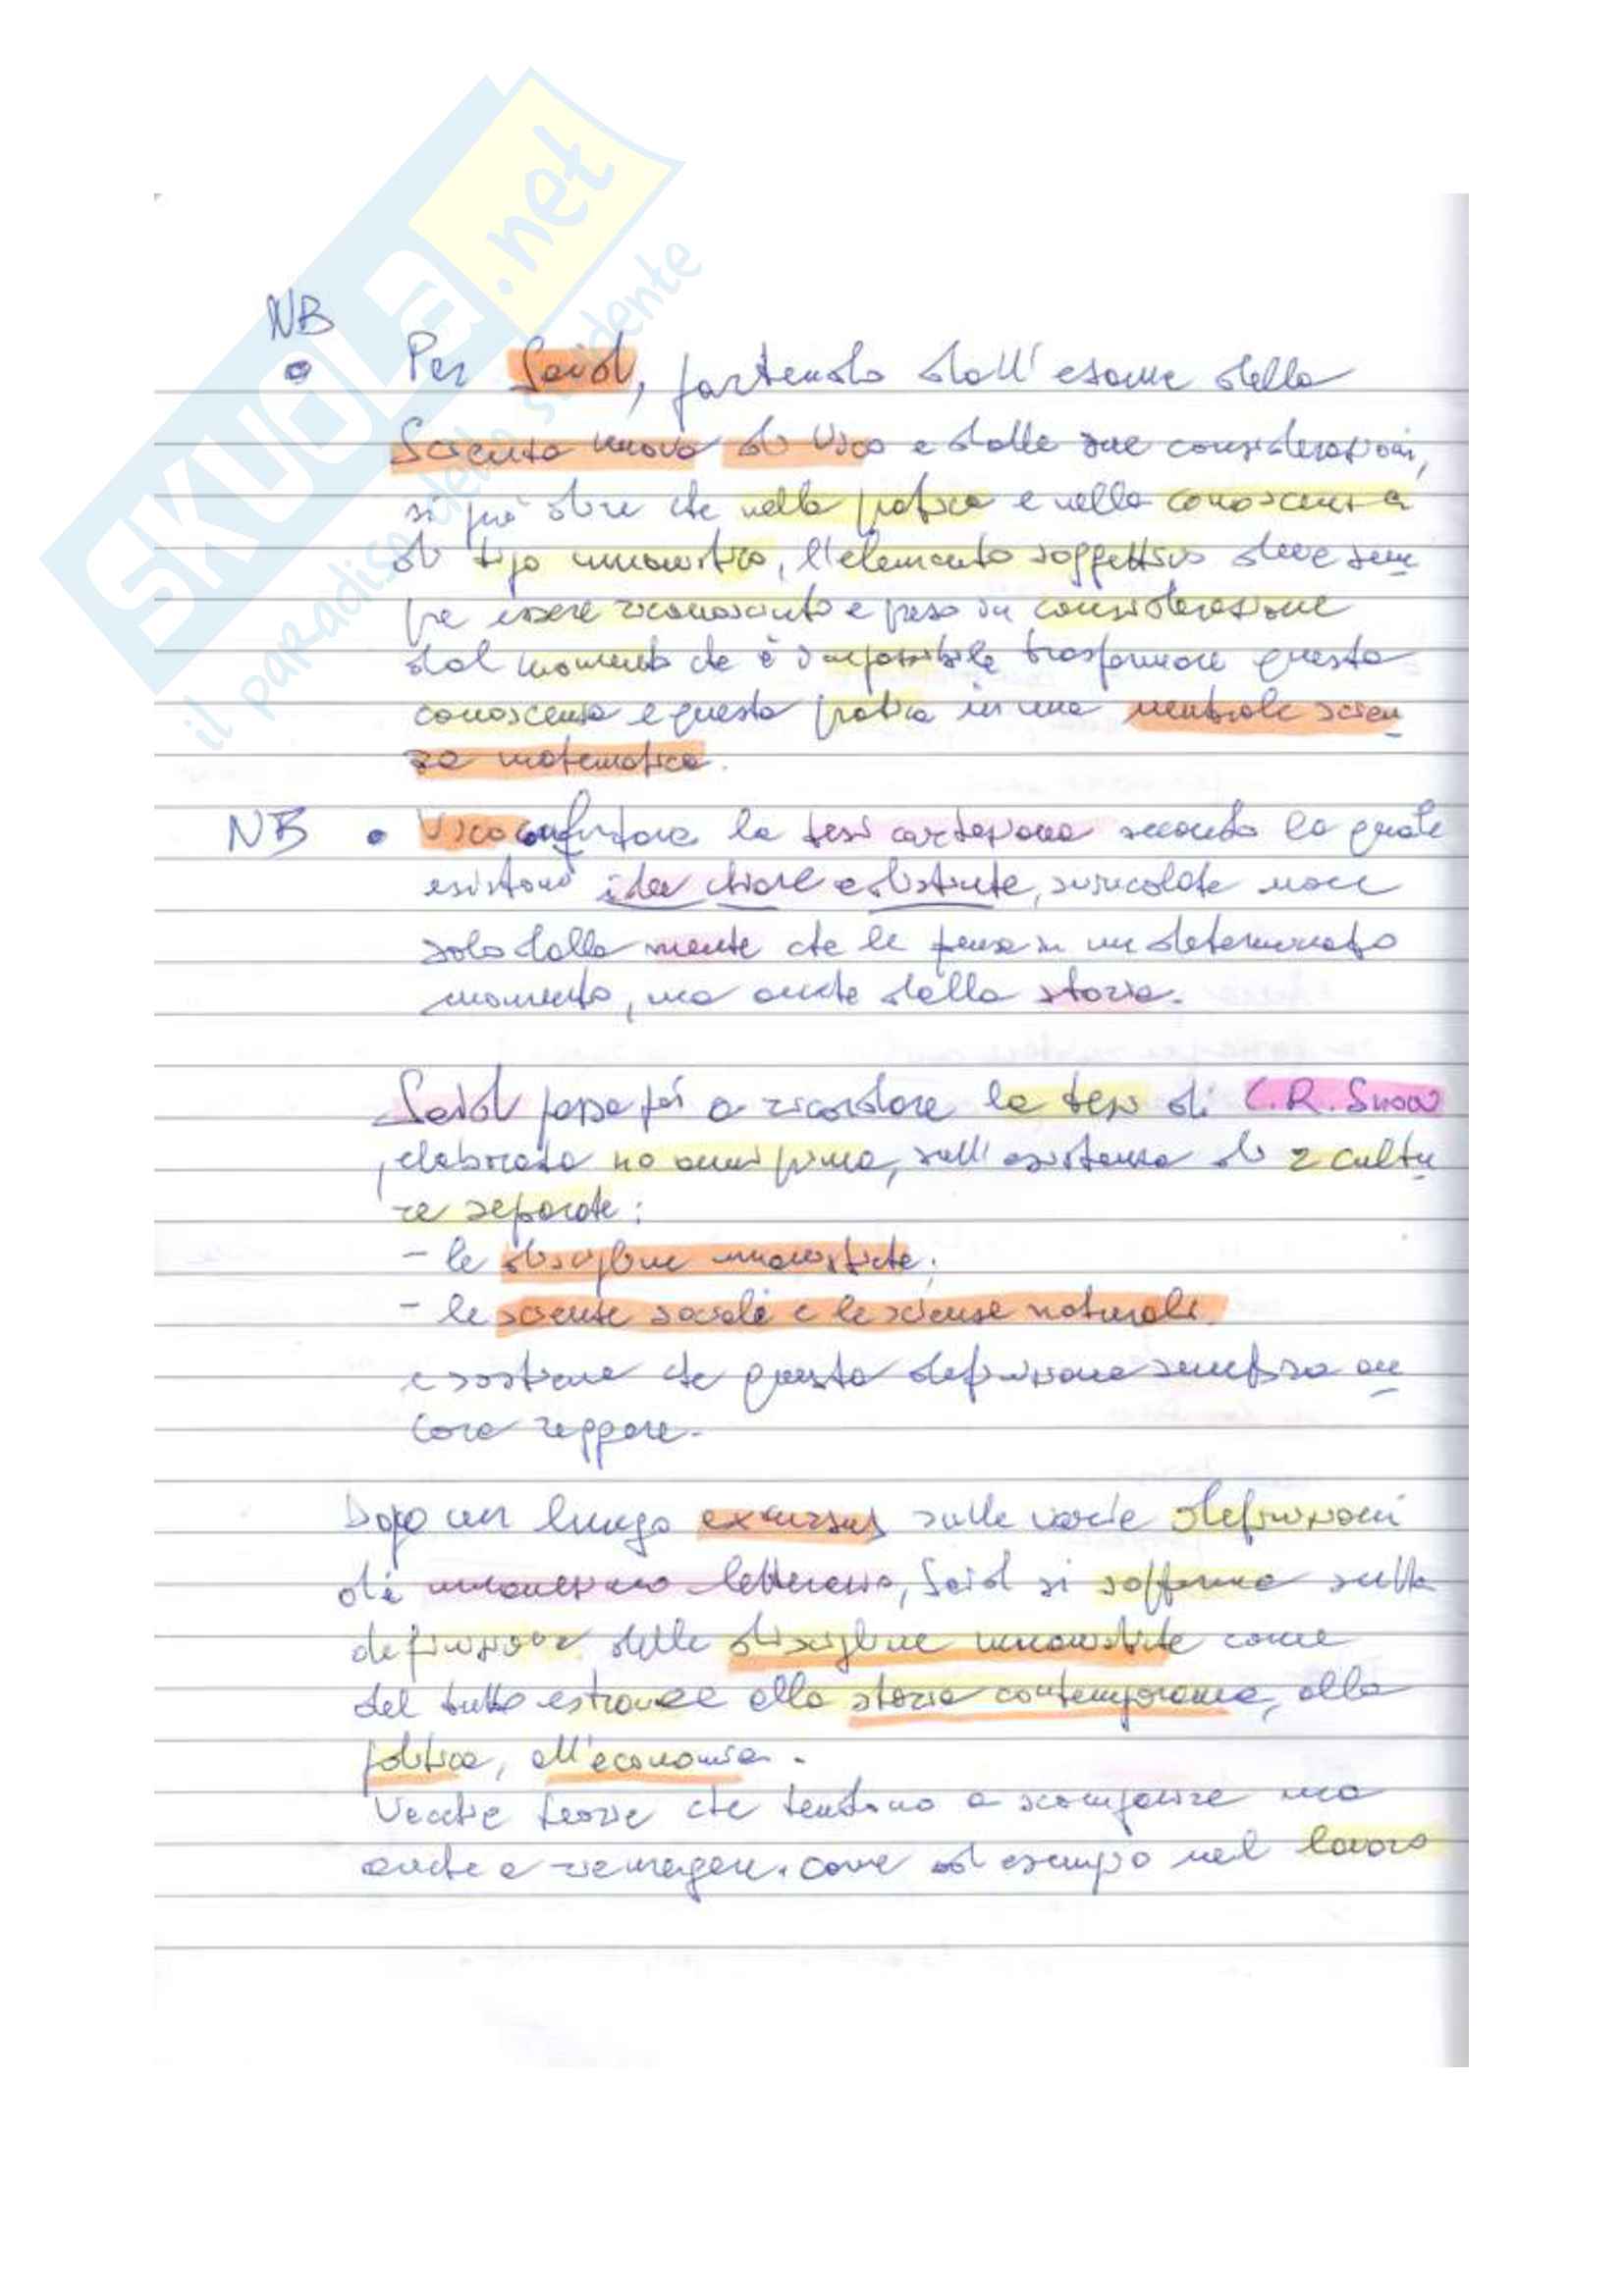 SKUOLA.net
il paradiso dello studente
NB
• Per Said, partendo dall'esame della
Scienza nuova di Vico e dalle sue considerazioni,
si può dire che nella pratica e nella conoscenza
di tipo umanistico, l'elemento soggettivo deve sem
pre essere riconosciuto e preso in considerazione
dal momento che è impossibile trasformare questa
conoscenza e questa pratica in una neutrale scien
za matematica.
NB • Vico confutava la tesi cartesiana secondo la quale
esistono idee chiare e distinte, svincolate non
solo dalla mente che le pensa in un determinato
momento, ma anche dalla storia.
Said passa poi a ricordare la tesi di C.R. Snow
, elaborata 40 anni prima, sull'esistenza di 2 cultu
re separate:
- le discipline umanistiche;
- le scienze sociali e le scienze naturali.
e sostiene che questa definizione sembra an
cora reggere.
Dopo un lungo excursus sulle varie definizioni
di umanesimo letterario, Said si sofferma sulla
definizione delle discipline umanistiche come
del tutto estranee alla storia contemporanea, alla
politica, all'economia.
Vecchie teorie che tendono a scomparire ma
anche a riemergere. come ad esempio nel lavoro